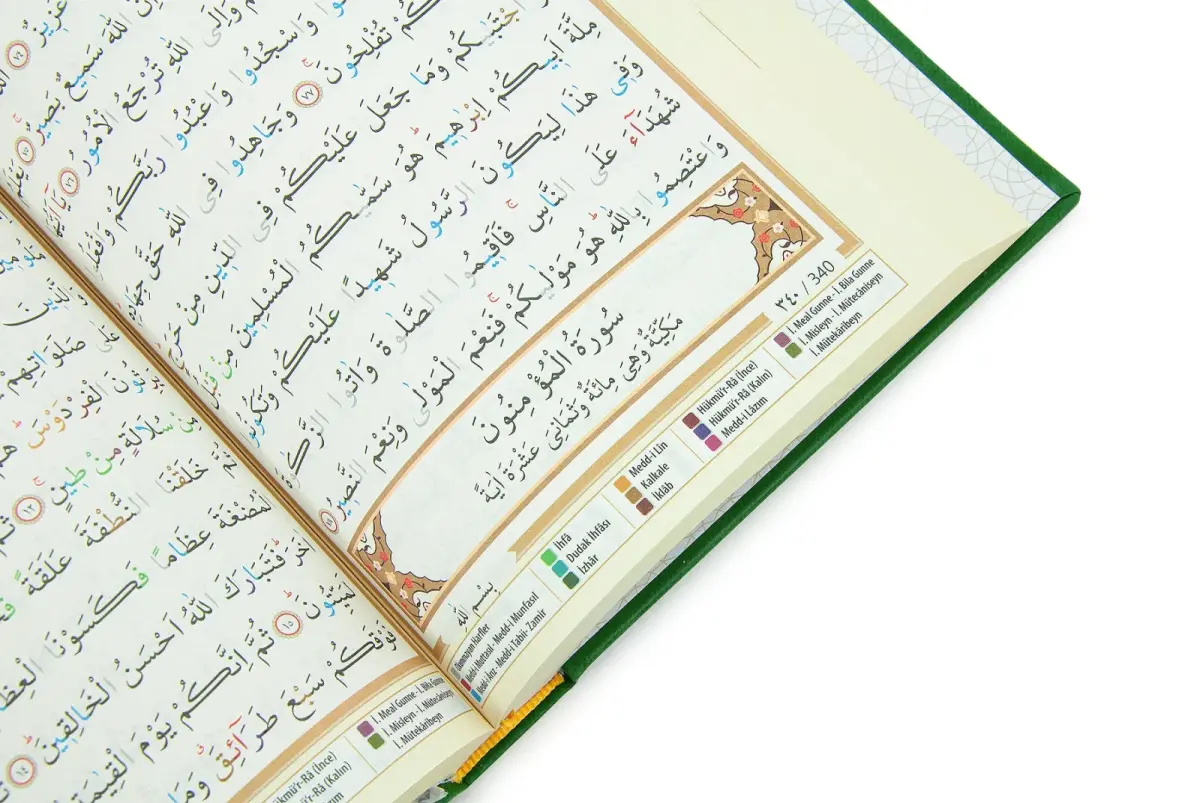 عَزٖيزٌ ٧٤
اِنَّ اللّٰهَ سَمٖيعٌ بَصٖيرٌ ٧٥ يَعْلَمُ
وَاِلَى اللّٰهِ تُرْجَعُ الْاُمُورُ ٧٦ يَٓا اَيُّهَا
وَاسْجُدُوا وَاعْبُدُوا رَبَّكُمْ وَافْعَلُوا
تُفْلِحُونَۚ ٧٧ وَجَاهِدُوا فِى اللّٰهِ حَقَّ جِهَادِهٖ
اجْتَبٰيكُمْ وَمَا جَعَلَ عَلَيْكُمْ فِى الدّٖينِ مِنْ حَرَجٍ
مِلَّةَ اَبٖيكُمْ اِبْرٰهٖيمَۜ هُوَ سَمّٰيكُمُ الْمُسْلِمٖينَ مِنْ قَبْلُ
وَفٖى هٰذَا لِيَكُونَ الرَّسُولُ شَهٖيدًا عَلَيْكُمْ وَتَكُونُوا
شُهَدَٓاءَ عَلَى النَّاسِۚ فَاَقٖيمُوا الصَّلٰوةَ وَاٰتُوا الزَّكٰوةَ
وَاعْتَصِمُوا بِاللّٰهِۜ هُوَ مَوْلٰيكُمْۚ فَنِعْمَ الْمَوْلٰى وَنِعْمَ النَّصٖيرُ ٧٨
سُورَةُ الْمُؤْمِنُونَ
مَكِّيَّةٌ وَهِىَ مِائَةٌ وَثَمَانِى عَشْرَةَ اٰيَةً
بِسْمِ اللّٰهِ
٣٤٠ / 340
İ. Meal Gunne - İ. Bila Gunne
İ. Misleyn - İ. Mütecâniseyn
İ. Mütekâribeyn
Hükmü'r-Râ (İnce)
Hükmü'r-Râ (Kalın)
Medd-i Lâzım
Medd-i Lîn
Kalkale
İklâb
İhfâ
Dudak İhfâsı
İzhâr
Okunmayan Harfler
Medd-i Muttasıl - Medd-i Munfasıl
Medd-i Ârız - Medd-i Tabii- Zamir
عَلٰى صَلَوَاتِهِمْ
يَرِثُونَ الْفِرْدَوْسَۜ هُمْ
مِنْ سُلَالَةٍ مِنْ طٖينٍۚ ١٢ ثُمَّ
ثُمَّ خَلَقْنَا النُّطْفَةَ عَلَقَةً
الْمُضْغَةَ عِظَامًا فَكَسَوْنَا الْعِظَا
اٰخَرَۜ فَتَبَارَكَ اللّٰهُ اَحْسَنُ الْخَالِقٖينَۜ ١٤
لَمَيِّتُونَۜ ١٥ ثُمَّ اِنَّكُمْ يَوْمَ الْقِيٰمَةِ
فَوْقَكُمْ سَبْعَ طَرَٓائِقَۗ وَمَا
İ. Meal Gunne - İ. Bila Gunne
İ. Misleyn - İ. Mütecâniseyn
İ. Mütekâribeyn
Hükmü'r-Râ (İnce)
Hükmü'r-Râ (Kalın)